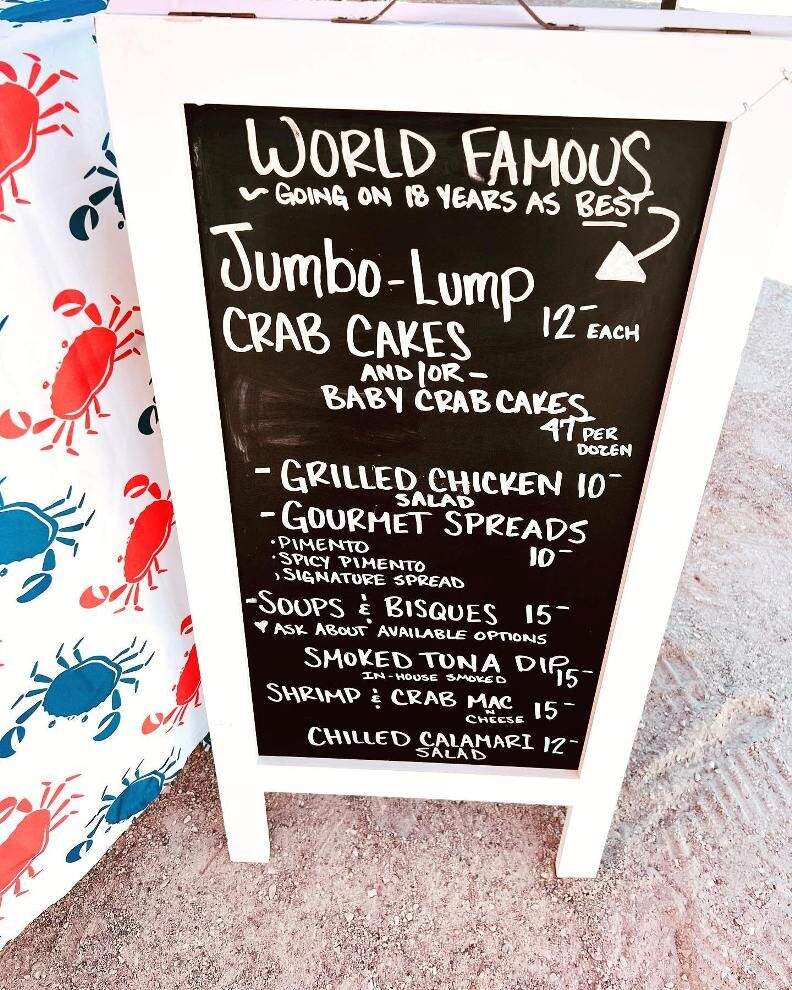 WORLD FAMOUS
~ GOING ON 18 YEARS AS BEST
Jumbo-Lump
CRAB CAKES 12- EACH
AND/OR-
BABY CRAB CAKES
47 PER
DOZEN
- GRILLED CHICKEN 10-
SALAD
- GOURMET SPREADS
10-
• PIMENTO
• SPICY PIMENTO
• SIGNATURE SPREAD
- SOUPS & BISQUES 15-
♥ ASK ABOUT AVAILABLE OPTIONS
SMOKED TUNA DIP 15-
IN-HOUSE SMOKED
SHRIMP & CRAB MAC 15-
N
CHEESE
CHILLED CALAMARI 12-
SALAD